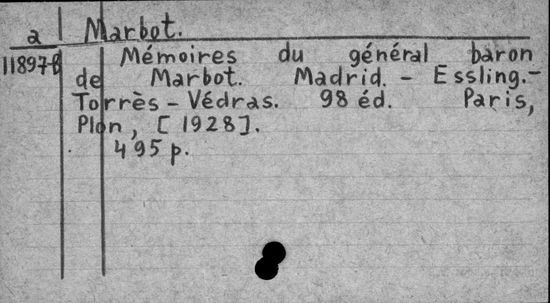 a Marbot.
118978 Mémoires du général baron
de Marbot. Madrid. - Essling. -
Torrès - Védras. 98 éd. Paris,
Plon, [1928].
495 p.